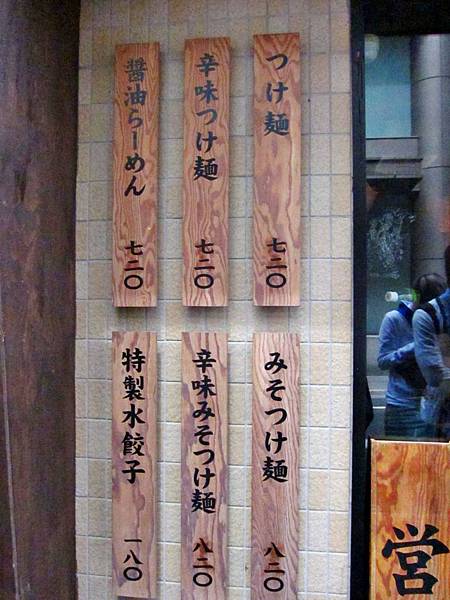 つけ麺 七二〇
辛味つけ麺 七二〇
醤油らーめん 七二〇
みそつけ麺 八二〇
辛味みそつけ麺 八二〇
特製水餃子 一八〇
営